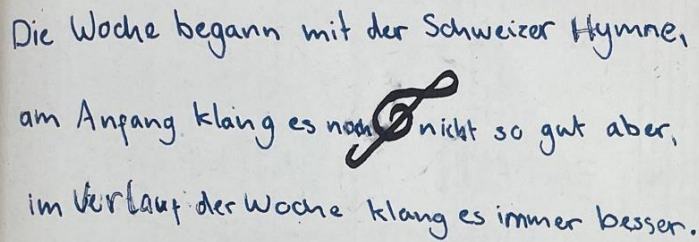 Die Woche begann mit der Schweizer Hymne,
am Anfang klang es noch nicht so gut aber,
im Verlauf der Woche klang es immer besser.